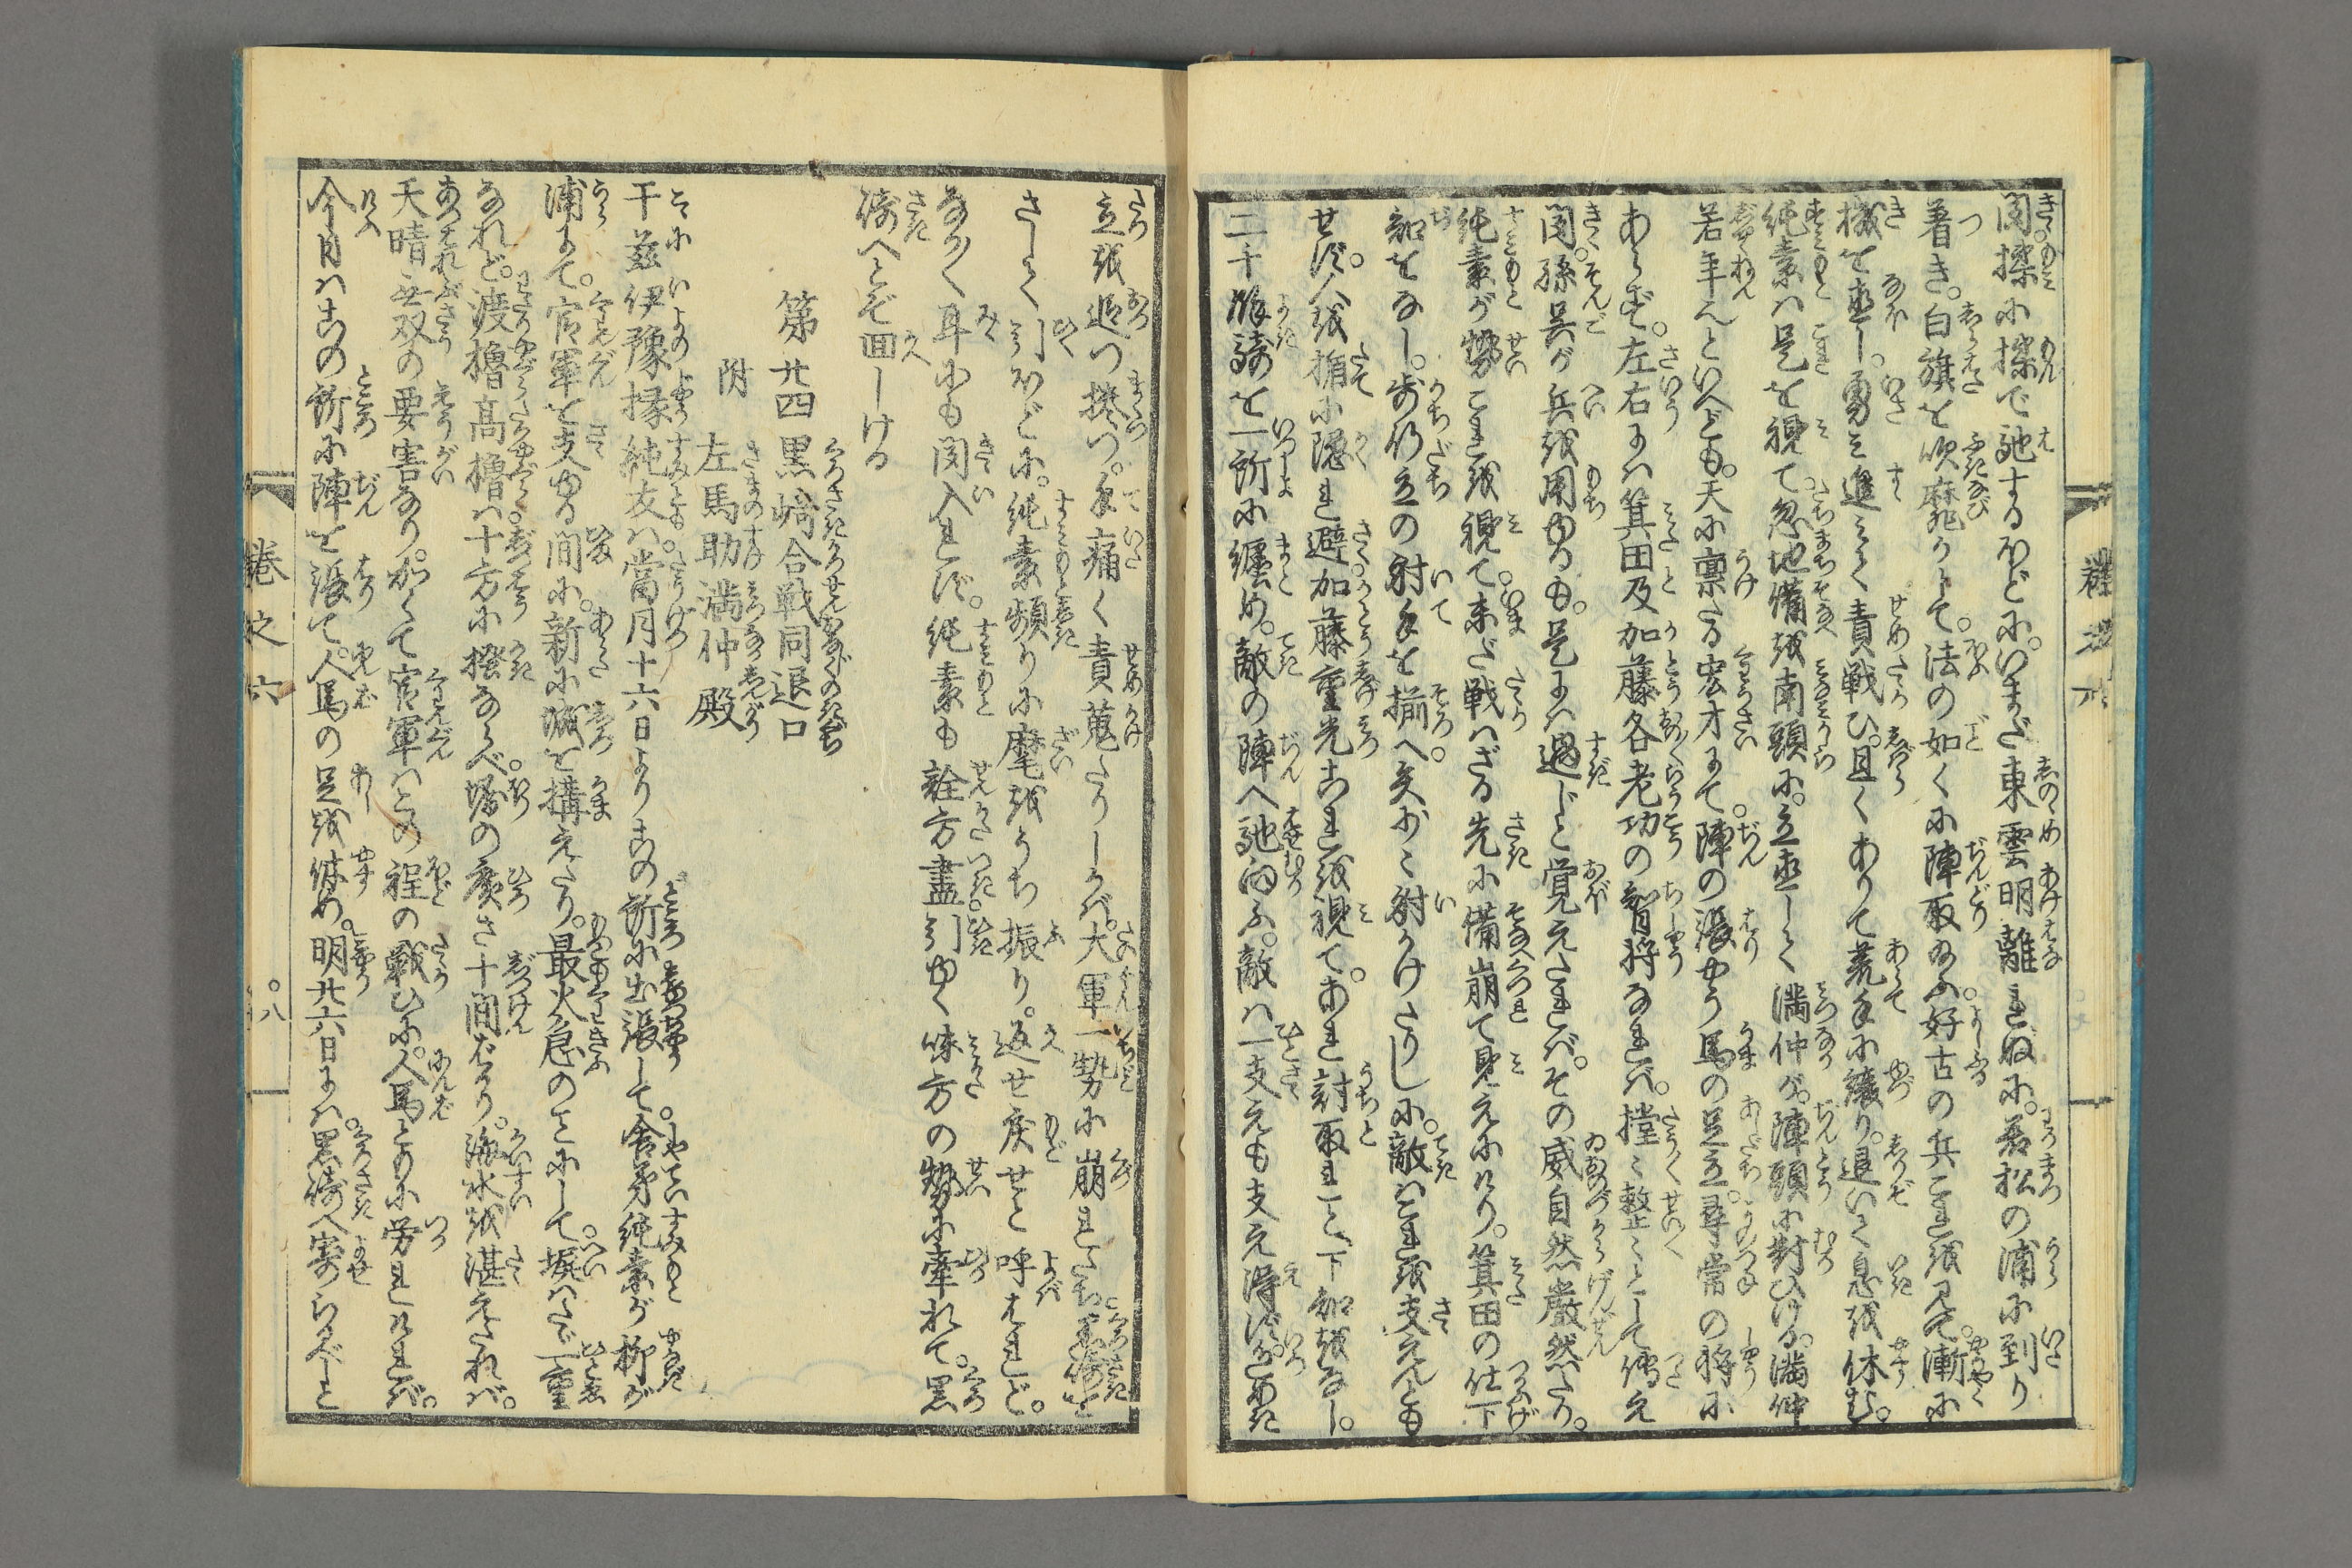 閧操に操で馳するほどに。いまだ東雲明離れぬに。若松の浦に到り
着き。白旗を吹靡かして。法の如くに陣取給ふ。好古の兵これを見て。漸に
機を直し。勇み進みて責戦ひ。且くありて荒手に譲り。退いて息を休む。
純素は是を視て。忽地備を南頭に。立直して満仲が。陣頭に対ひける。満仲
若年といへども。天に禀たる宏才にて。陣の張やう馬の足立。尋常の将に
あらず。左右には箕田及加藤各老功の智将なれば。堂〻整〻として傳え
聞。孫呉が兵を用ゆるも。是には過じと覚えたれば。その威自然嚴然たり。
純素が勢これを視て。未だ戦はざる先に備崩て見えにけり。箕田の仕下
知をなし。歩行立の射手を揃へ矢少〻射かけたりしに。敵はこれを支えんとも
せず。人を楯に隠れ避。加藤重光これを視て。あれ討取れと下知をなし。
二千餘騎を一所に纏め。敵の陣へ馳向ふ。敵は一支えも支え得ず。
立を追つ捲つ。手痛く責蒐たりしかば。大軍一勢に崩れたち黒崎を
さして引ほどに。純素頻りに麾をうち振り。返せ戻せと呼はれど。
なかなか耳にも聞入れず。純素も詮方盡引ゆく味方の勢に牽れて。黒
崎へとぞ回しける
第廿四 黒崎合戦同退口
附 左馬助満仲殿
干茲伊豫掾純友は。當月十六日よりこの所に出張して。舎弟純素が柳が
浦にて。官軍を支ゆる間に。新に城を構えたり。最火急のことにして。塀はたゞ一重
なれど。渡櫓高櫓は十方に掻ならべ。堀の廣さ十間ばかり。海水を湛えたれば。
天晴無双の要害なり。かくて官軍はこの程の戦ひに。人馬ともに労れければ。
今日はこの所に陣を張て。人馬の足を休め。明廿六日には。黒崎へ寄らんと
巻之六
八